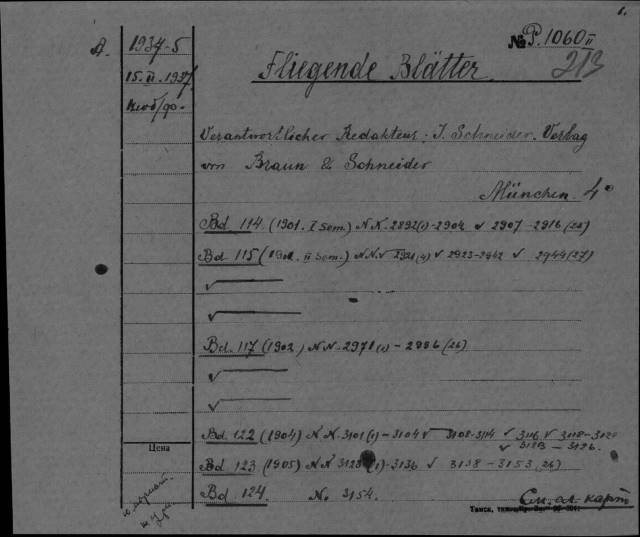 1.
A. 1937-5 № P. 1060 II
213
15. II. 1937
Fliegende Blätter
Verantwortlicher Redakteur: J. Schneider. Verlag
von Braun & Schneider
München. 4°
Bd 114. (1901. I Sem.) N.N. 2892(1)-2904 v 2907-2916 (26)
Bd 115 (1901. II Sem.) N.N. v 2921(4) v 2923-2942 v 2944(27)
v
v
Bd. 117 (1902) N.N. 2971(1) - 2996 (26)
v
v
Bd 122 (1904) N.N. 3101(1)-3104 v 3108-3114 v 3116 v 3118-
v 3123-3126.
Цена
Bd 123 (1905) N.N. (1)-3136 v 3138-3153 (26)
Bd 124 No. 3154.
См. сл. карт